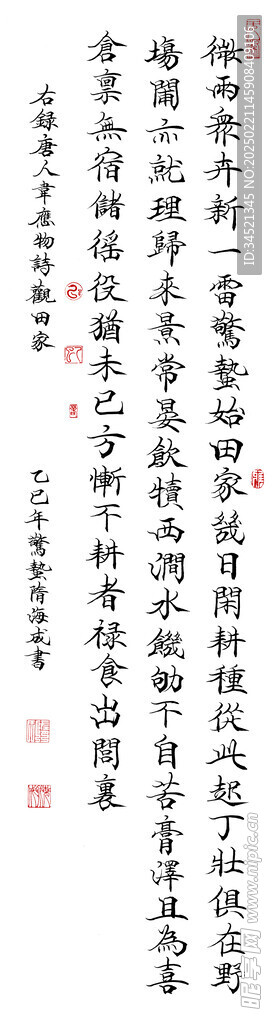 微雨眾卉新一雷驚蟄始田家幾日閑耕種從此起丁壯俱在野
塲圃亦就理歸來景常晏飲犢西澗水饑劬不自苦膏澤且為喜
倉稟無宿儲徭役猶未已方慚不耕者禄食出閭裏
右錄唐人韋應物詩觀田家
乙巳年驚蟄隋海成書
ID:34521345 NO:20250221145908409106
昵享网 www.nipic.cn